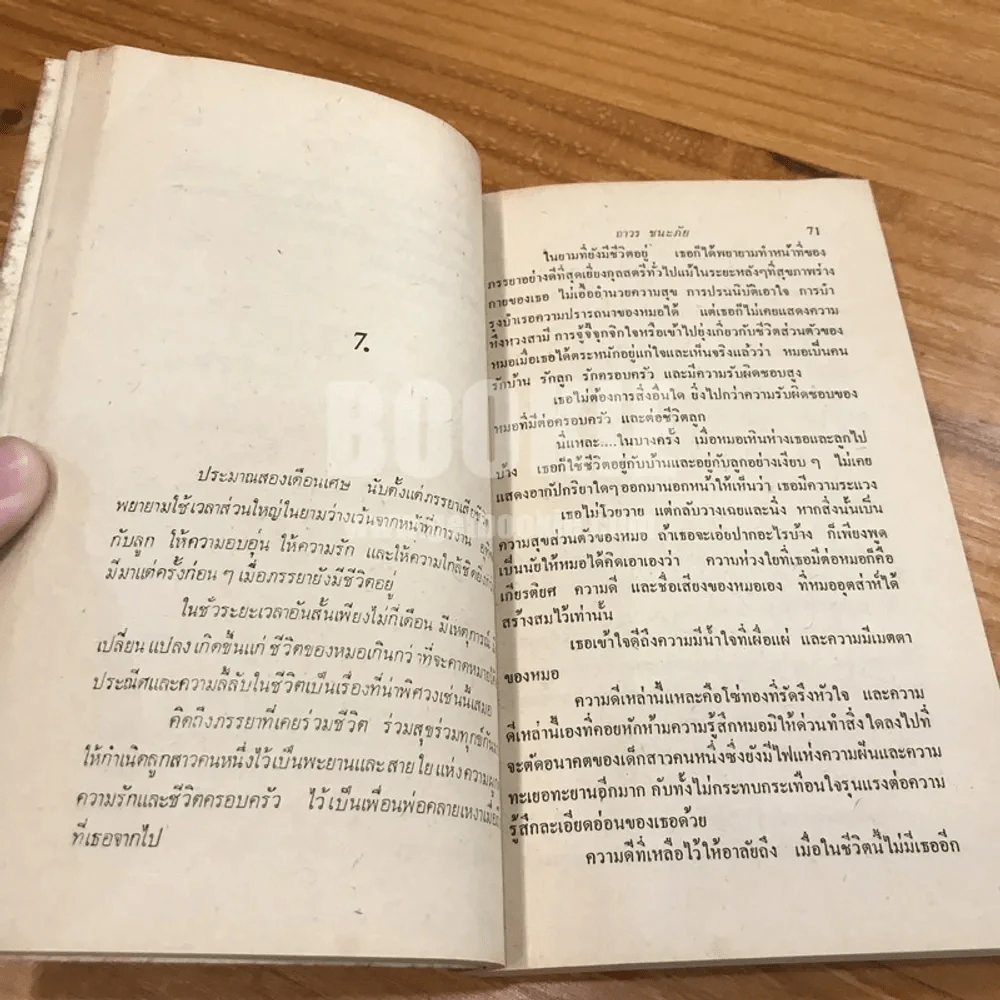 7.
ประมาณสองเดือนเศษ นับตั้งแต่ภรรยาเสียชีวิต
พยายามใช้เวลาส่วนใหญ่ในยามว่างเว้นจากหน้าที่การงาน
กับลูก ให้ความอบอุ่น ให้ความรัก และให้ความใกล้ชิด
มีมาแต่ครั้งก่อน ๆ เมื่อภรรยายังมีชีวิตอยู่
ในชั่วระยะเวลาอันสั้นเพียงไม่กี่เดือน มีเหตุการณ์
เปลี่ยนแปลง เกิดขึ้นแก่ ชีวิตของหมอเกินกว่าที่จะคาดหมาย
ประณีตและความลี้ลับในชีวิตเป็นเรื่องที่น่าพิศวงเช่นนี้เสมอ
คิดถึงภรรยาที่เคยร่วมชีวิต ร่วมสุขร่วมทุกข์กันมา
ให้กำเนิดลูกสาวคนหนึ่งไว้เป็นพะยานและสายใยแห่งความ
ความรักและชีวิตครอบครัว ไว้เป็นเพื่อนพ่อคลายเหงาเมื่อ
ที่เธอจากไป
ถาวร ชนะภัย 71
ในยามที่ยังมีชีวิตอยู่ เธอก็ได้พยายามทำหน้าที่ของ
ภรรยาอย่างดีที่สุดเยี่ยงกุลสตรีทั่วไปแม้ในระยะหลังๆที่สุขภาพร่าง
กายของเธอ ไม่เอื้ออำนวยความสุข การปรนนิบัติเอาใจ การบำ
รุงบำเรอความปรารถนาของหมอได้ แต่เธอก็ไม่เคยแสดงความ
หึงหวงสามี การจู้จี้จุกจิกใจหรือเข้าไปยุ่งเกี่ยวกับชีวิตส่วนตัวของ
หมอเมื่อเธอได้ตระหนักอยู่แก่ใจและเห็นจริงแล้วว่า หมอเป็นคน
รักบ้าน รักลูก รักครอบครัว และมีความรับผิดชอบสูง
เธอไม่ต้องการสิ่งอื่นใด ยิ่งไปกว่าความรับผิดชอบของ
หมอที่มีต่อครอบครัว และต่อชีวิตลูก
นี่แหละ....ในบางครั้ง เมื่อหมอเหินห่างเธอและลูกไป
บ้าง เธอก็ใช้ชีวิตอยู่กับบ้านและอยู่กับลูกอย่างเงียบ ๆ ไม่เคย
แสดงอากัปกริยาใดๆ ออกมานอกหน้าให้เห็นว่า เธอมีความระแวง
เธอไม่โวยวาย แต่กลับวางเฉยและนิ่ง หากสิ่งนั้นเป็น
ความสุขส่วนตัวของหมอ ถ้าเธอจะเอ่ยปากอะไรบ้าง ก็เพียงพูด
เป็นนัยให้หมอได้คิดเอาเองว่า ความห่วงใยที่เธอมีต่อหมอก็คือ
เกียรติยศ ความดี และชื่อเสียงของหมอเอง ที่หมออุตส่าห์ได้
สร้างสมไว้เท่านั้น
เธอเข้าใจดีถึงความมีน้ำใจที่เผื่อแผ่ และความมีเมตตา
ของหมอ
ความดีเหล่านี้แหละคือโซ่ทองที่รัดรึงหัวใจ และความ
ดีเหล่านี้เองที่คอยหักห้ามความรู้สึกหมอมิให้ด่วนทำสิ่งใดลงไปที่
จะตัดอนาคตของเด็กสาวคนหนึ่งซึ่งยังมีไฟแห่งความฝันและความ
ทะเยอทะยานอีกมาก กับทั้งไม่กระทบกระเทือนใจรุนแรงต่อความ
รู้สึกละเอียดอ่อนของเธอด้วย
ความดีที่เหลือไว้ให้อาลัยถึง เมื่อในชีวิตนี้ไม่มีเธออีก